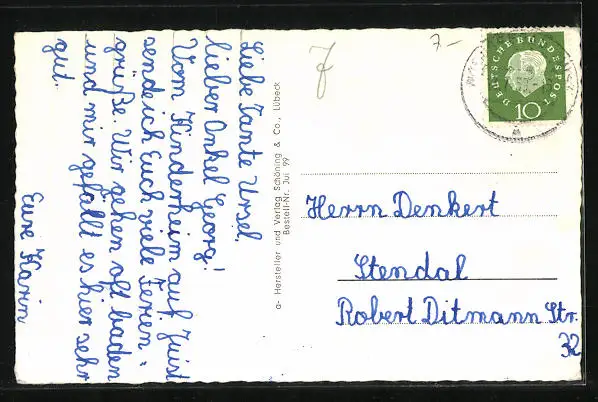 Liebe Tante Ursel,
lieber Onkel Georg!
Vom Kinderheim auf Juist
send ich Euch viele Ferien-
grüße. Wir gehen oft baden
und mir gefällt es hier sehr
gut.
Eure Karin
a- Hersteller und Verlag Schöning & Co., Lübeck
Bestell-Nr. Jui 99
7-
DEUTSCHE BUNDESPOST
10
Herrn Denkert
Stendal
Robert Ditmann Str.
32